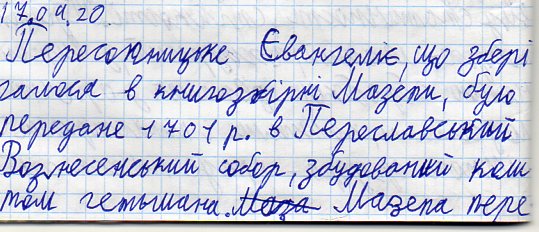 17.04.20
Пересопницьке Євангеліє, що збері
галося в книгозбірні Мазепи, було
передане 1701 р. в Переславський
Вознесенський собор, збудований кош
том гетьмана. Маза Мазепа пере